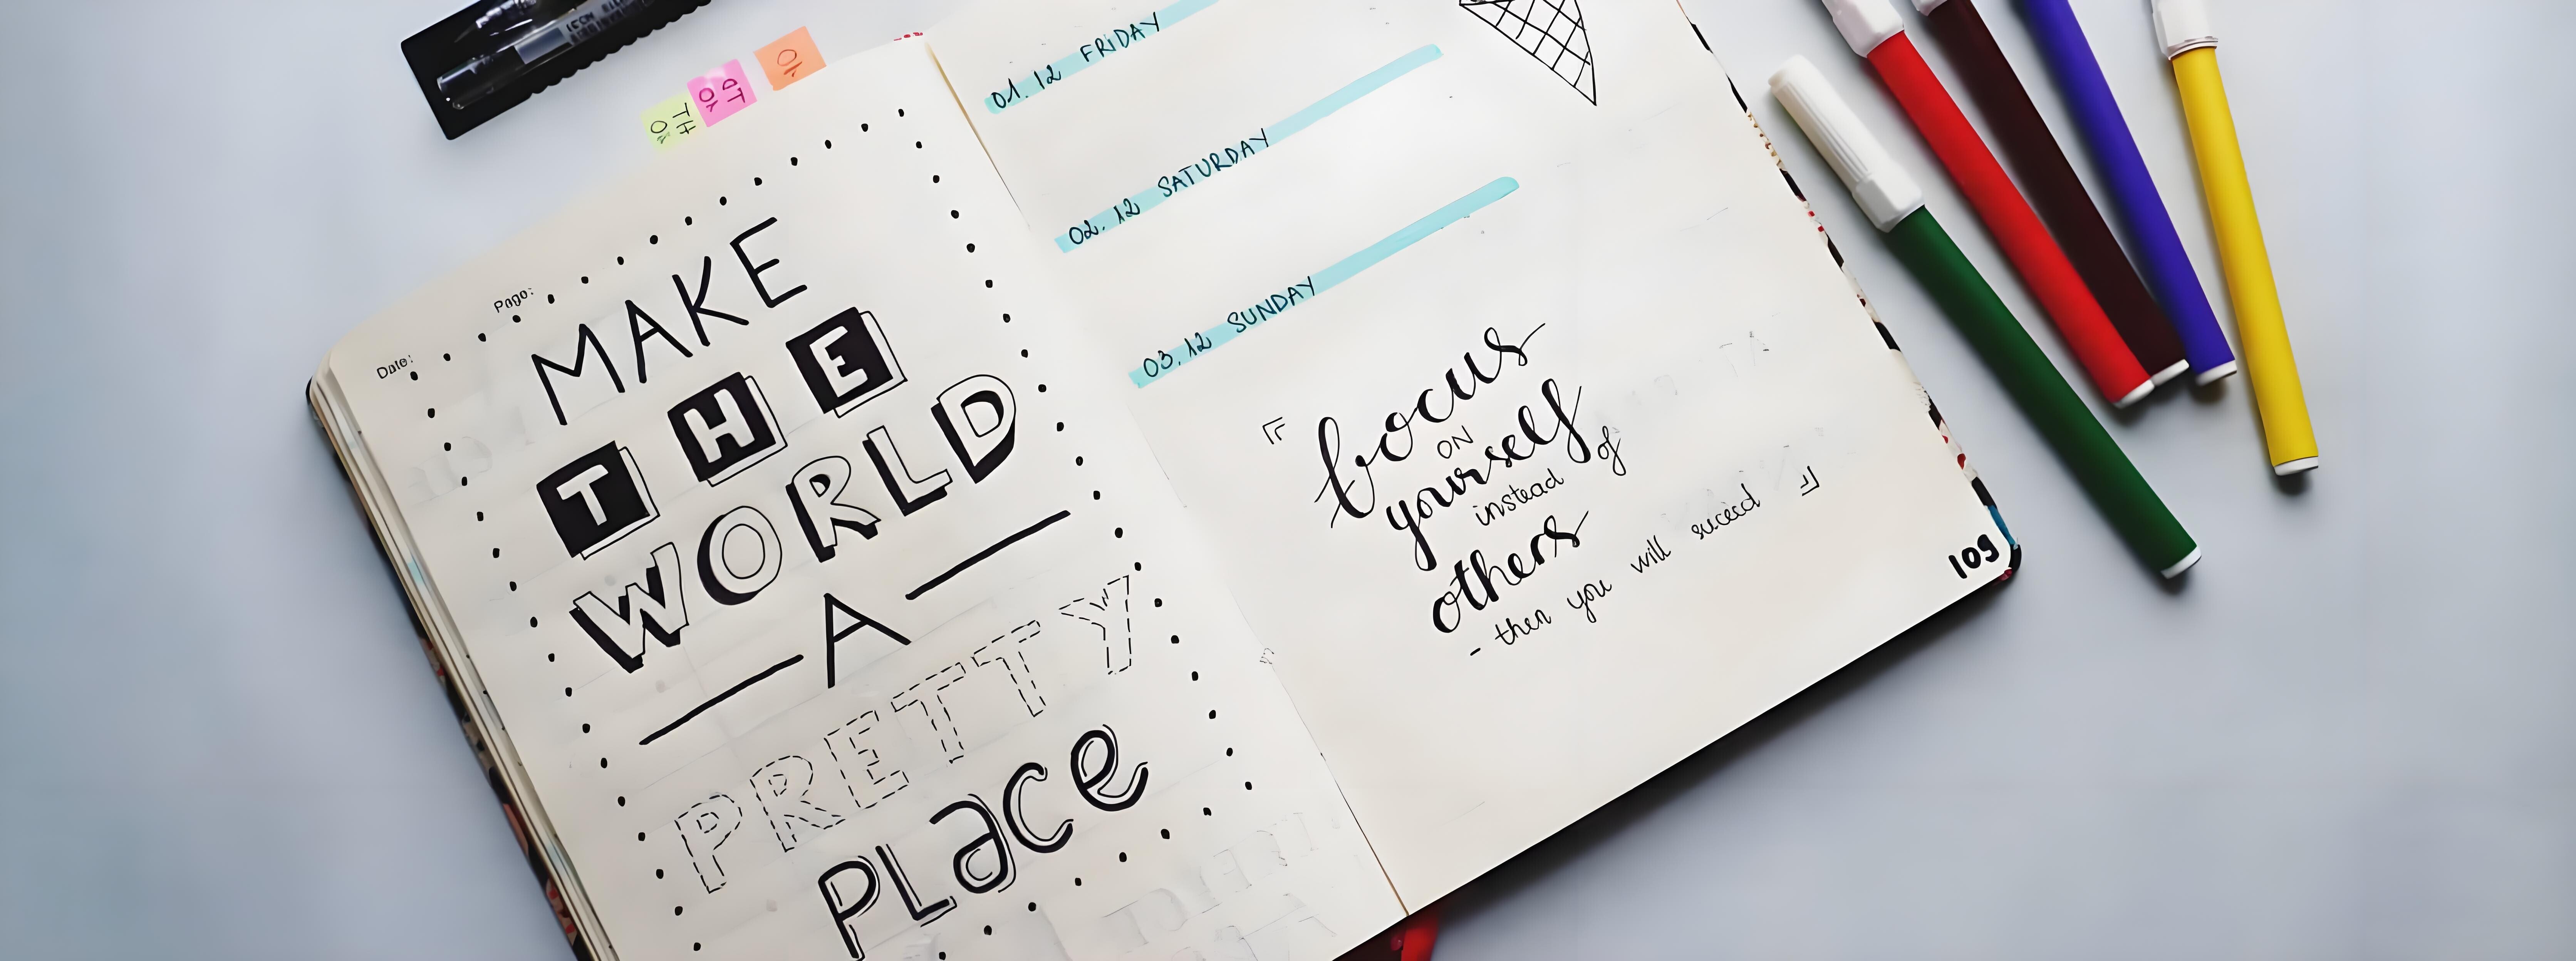 Page:
Date:
MAKE
THE
WORLD
A
PRETTY
PLace
01.12 FRIDAY
02.12 SATURDAY
03.12 SUNDAY
focus
ON
yourself
instead of
others
- then you will succed
109